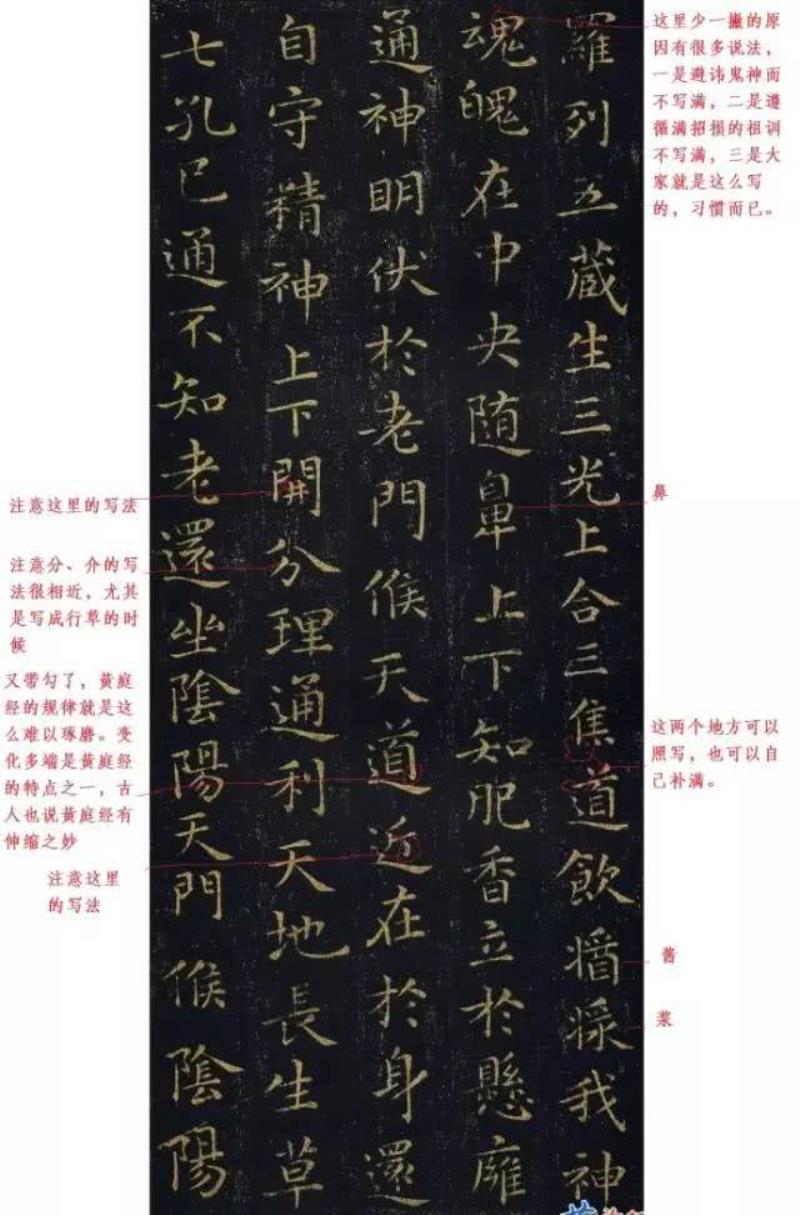 羅列五蔵生三光上合三焦道飲酱㹡我神
魂魄在中央随鼻上下知肥香立於懸廱
通神明伏於老門候天道近在於身還
自守精神上下開分理通利天地長生草
七孔已通不知老還坐陰陽天門候陰陽
这里少一撇的原
因有很多说法，
一是避讳鬼神而
不写满，二是遵
循满招损的祖训
不写满，三是大
家就是这么写
的，习惯而已。
鼻
这两个地方可以
照写，也可以自
己补满。
酱
浆
注意这里的写法
注意分、介的写
法很相近，尤其
是写成行草的时
候
又带勾了，黄庭
经的规律就是这
么难以琢磨。变
化多端是黄庭经
的特点之一，古
人也说黄庭经有
伸缩之妙
注意这里
的写法